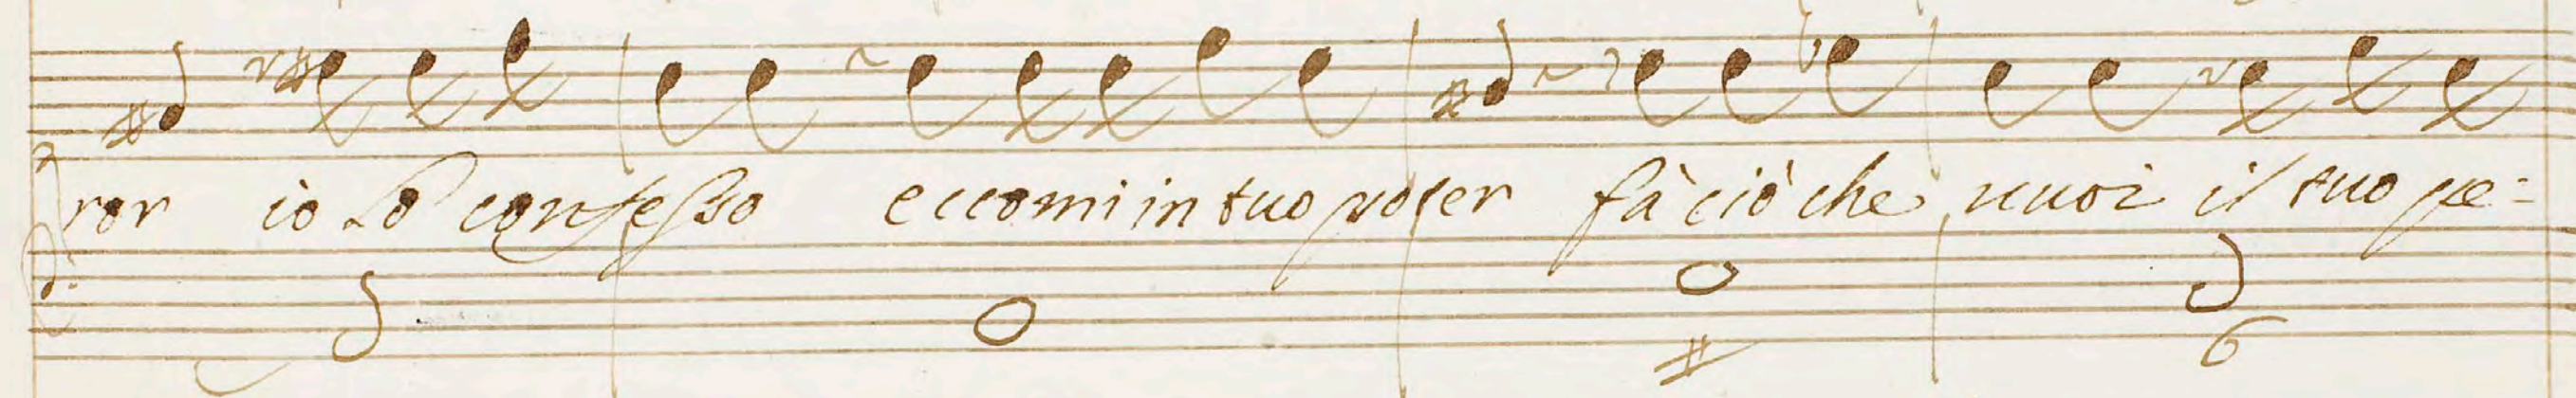 ror io lo confesso eccomi in tuo poter fà ciò che vuoi il tuo pe=
6